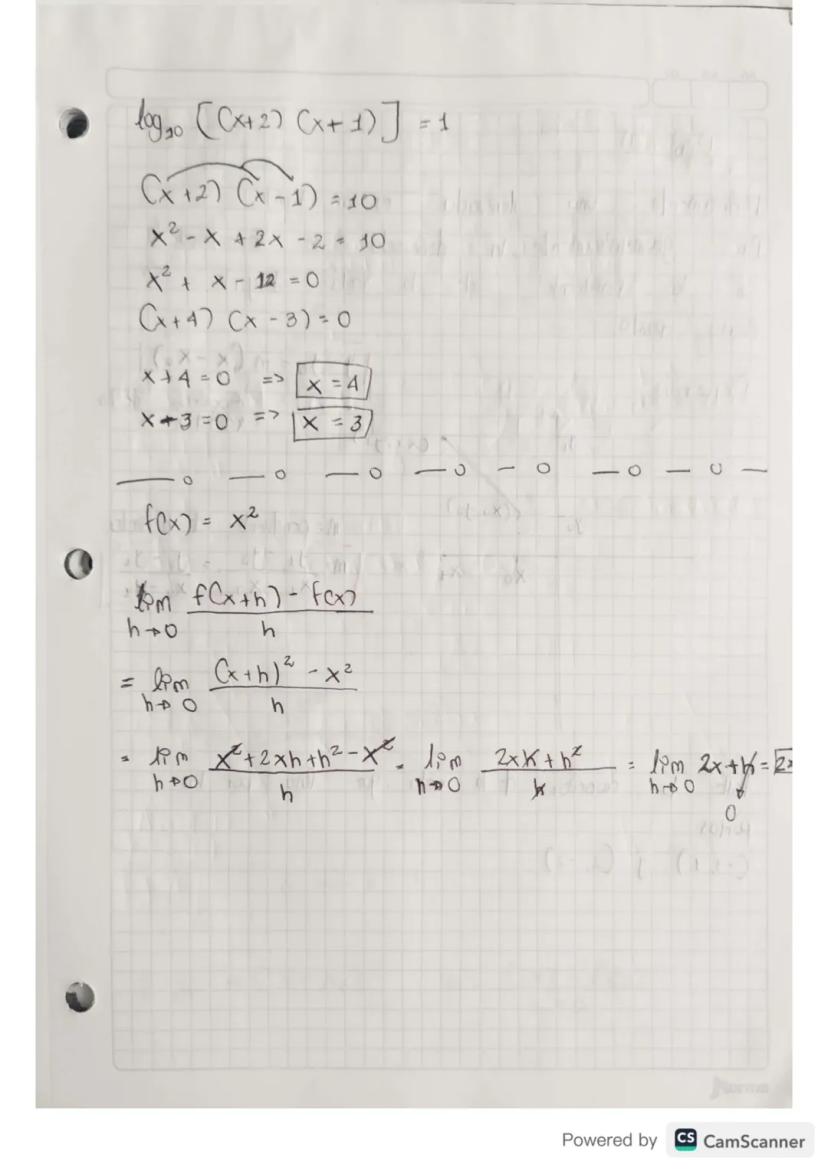 log₁₀ [(x+2) (x+1)] = 1
(x+2) (x-1) = 10
x² - x + 2x - 2 = 10
x² + x - 12 = 0
(x+4) (x-3) = 0
x+4 = 0 => x = 4
x+3 = 0 => x = 3
f(x) = x²
lim h→0 (f(x+h) - f(x))/h
= lim h→0 ((x+h)² - x²)/h
= lim h→0 (x²+2xh+h²-x²)/h = lim h→0 (2xh+h²)/h = lim h→0 2x+h = 2x
0
Powered by CS CamScanner